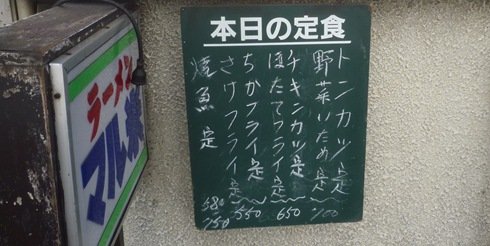 本日の定食
トンカツ定
野菜いため定 700
チキンカツ定
ほたてフライ定 650
ちかフライ定
さけフライ定 550
焼魚定 680 750
ラーメン
マル